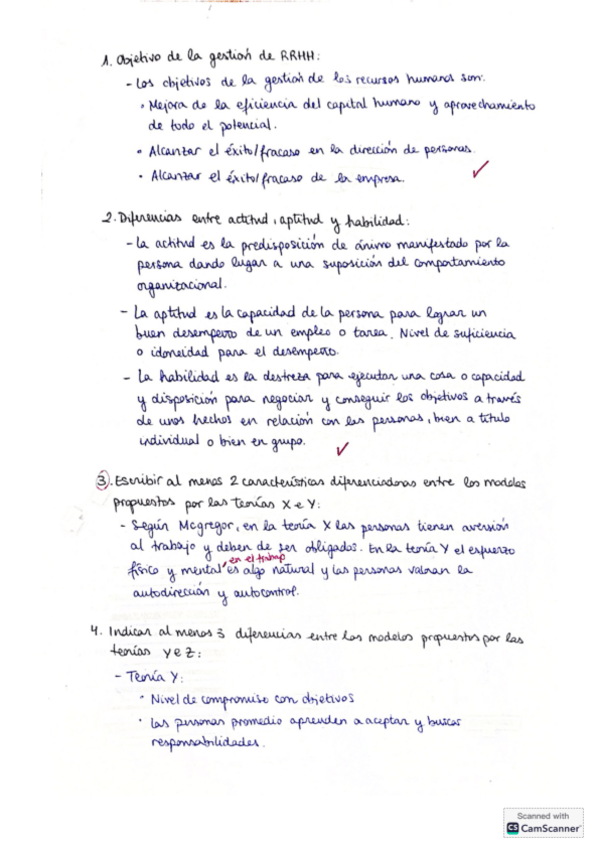 1. Objetivo de la gestión de RRHH:
- Los objetivos de la gestión de los recursos humanos son:
• Mejora de la eficiencia del capital humano y aprovechamiento
de todo el potencial.
• Alcanzar el éxito/fracaso en la dirección de personas.
• Alcanzar el éxito/fracaso de la empresa.
2. Diferencias entre actitud, aptitud y habilidad:
- La actitud es la predisposición de ánimo manifestado por la
persona dando lugar a una suposición del comportamiento
organizacional.
- La aptitud es la capacidad de la persona para lograr un
buen desempeño de un empleo o tarea. Nivel de suficiencia
o idoneidad para el desempeño.
- La habilidad es la destreza para ejecutar una cosa o capacidad
y disposición para negociar y conseguir los objetivos a través
de unos hechos en relación con las personas, bien a título
individual o bien en grupo.
3. Escribir al menos 2 características diferenciadoras entre los modelos
propuestos por las teorías X e Y:
- Según Mcgregor, en la teoría X las personas tienen aversión
al trabajo y deben de ser obligados. En la teoría Y el esfuerzo
en el trabajo
físico y mental es algo natural y las personas valoran la
autodirección y autocontrol.
4. Indicar al menos 3 diferencias entre los modelos propuestos por las
teorías Y e Z:
- Teoría Y:
• Nivel de compromiso con objetivos
• Las personas promedio aprenden a aceptar y buscar
responsabilidades.
Scanned with
CS CamScanner